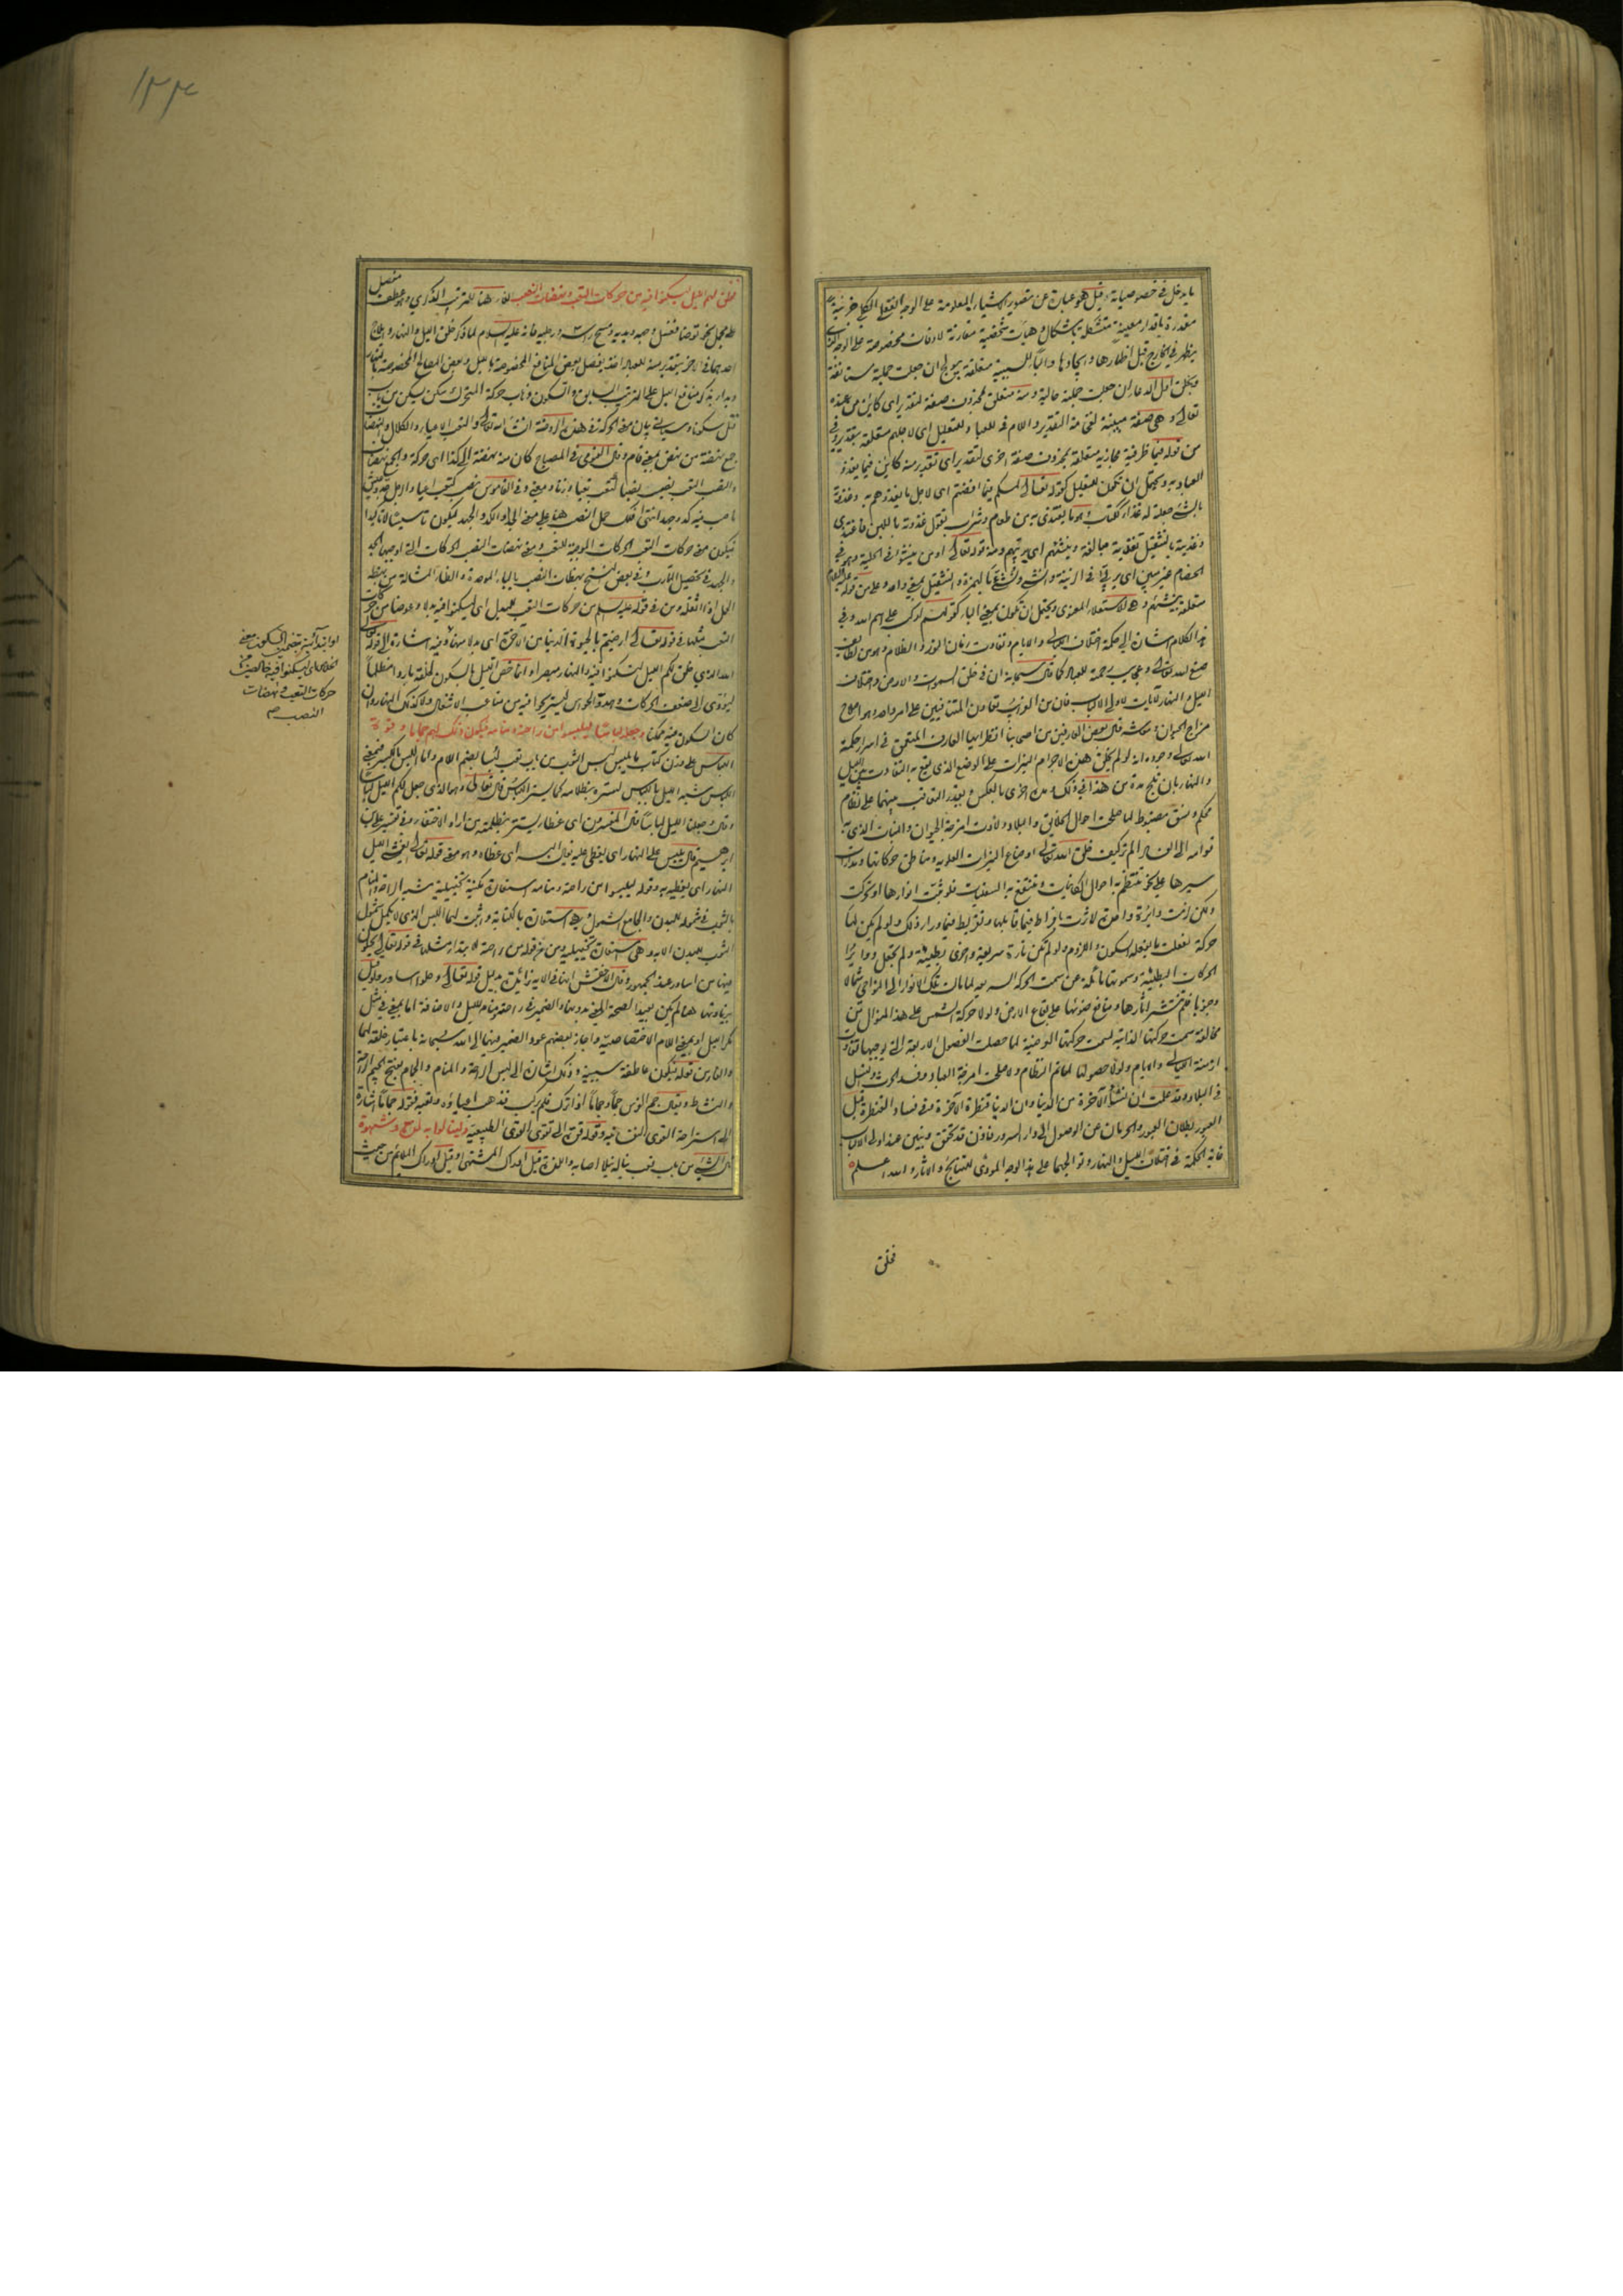 ما يدخل في خصوصياته وقيل هو عبارة عن تصوير الاشياء المعلومة على الوجه العقلي الكلي جزئية
مقدرة باقدار معينة متشكلة باشكال وهيآت شخصية مقارنة لاوقات مخصوصة على الوجه الذي
يظهر في الخارج قبل اظهارها وايجادها والباء للسببية متعلقة بيولج ان جعلت جملة مستانفة
تعالى وهي صفة مبينة لفخامة التقدير واللام في للعباد للتعليل اى لاجلهم متعلقة بتقدير وفي
من قوله فيما ظرفية مجازية متعلقة بمحذوف صفة اخرى لتقدير اى تقدير منه كاين فيما يغذو
العباد به ويحتمل ان تكون للتعليل كقوله تعالى لمسكم فيما افضتم اى لاجل ما يغذوهم به وغذوته
بالشئ جعلته له غذاء ككتاب وهو ما يغتذى به من طعام وشراب يقول غذوته باللبن فاغتذى
وغذيته بالتثقيل تغذية مبالغة وينشئهم اى يربيهم ومنه قوله تعالى او من ينشؤ في الحلية وهو في
الخصام غير مبين اى يربى في الزينة
متعلقة بينشئهم وهي للاستعلاء المعنوى ويحتمل ان تكون بمعنى الباء كقولهم اركب على اسم الله وفي
هذا الكلام اشارة الى حكمة اختلاف الليالي والايام وتفاوت ازمان النور والظلام وهو من لطايف
صنع الله تعالى وعجايب رحمته للعباد كما قال سبحانه ان في خلق السموات والارض واختلاف
الليل والنهار لايات لاولى الالباب فان من الغرايب تعاون المتنافيين على امر واحد هو اصلاح
مزاج الحيوان
الله تعالى وجوده انه لو لم يخلق هذه الاجرام النيرات على الوضع الذى يقع به التفاوت بين الليل
والنهار بان يقع مدة من هذا في ذلك ومدة اخرى بالعكس ويقدر التعاقب بينهما على نظام
محكم ونسق مضبوط لما صلحت احوال الخلايق والبلاد
قوامه الم تر كيف خلق الله تعالى اوضاع النيرات العلوية ومناطق حركاتها ومدارات
سيرها على نحو تنتظم به احوال الكاينات وتنتفع به السفليات فلو ثبتت انوارها او تحركت
ولكن لزمت دايرة واحدة لاثرت بافراط فيما قابلها وتفريط فيما وراء ذلك ولو لم يكن لها
حركة لفعلت ما يفعله السكون واللزوم ولو لم تكن تارة سريعة واخرى بطيئة ولم تجعل دوايرُ
الحركات البطيئة وسموتها مائلة عن سمت الحركة السريعة لما مالت تلك الانوار الى النواحي شمالا
وجنوبا فلم تنتشر آثارها ومنافع ضوئها على بقاع الارض ولولا حركة الشمس على هذا المنوال من
مخالفة سمت حركتها الذاتية لسمت حركتها العرضية لما حصلت الفصول الاربعة التي يوجبها تفاوت
ازمنة الليالي والايام ولولا حصولها لما تم النظام ولا صلحت امزجة العباد وفسد الحرث والنسل
في البلاد وقد علمت ان نشأة الآخرة من الدنيا وان الدنيا قنطرة الآخرة ففي فساد القنطرة قبل
العبور بطلان العبور والحرمان عن الوصول الى دار السرور فاذن قد تحقق وتبين عند اولى الالباب
غاية الحكمة في اختلاف الليل والنهار وتوالجهما على هذا الوجه المودى للنتايج والاثار والله اعلم
فخلق
١٣٣٤
فخلق لهم الليل ليسكنوا فيه من حركات التعب ونهضات النصب الفاء هنا للترتيب الذكري وهو عطف مفصل
على مجمل نحو توضا فغسل وجهه ويديه ومسح راسه ورجليه فانه عليه السلام لما ذكر خلق الليل والنهار وايلاج
احدهما في الاخر بتقدير منه للعباد اخذ يفصل بعض المنافع المخصوصة بالليل وبعض المصالح المخصوصة بالنهار
وبدا بذكر منافع الليل على الترتيب السابق والسكون ذهاب حركة المتحرك سكن يسكن من باب
قتل سكونا وسياتي بيان معنى الحركة في هذه الروضة ان شاء الله تعالى والتعب الاعياء والكلال والنهضات
جمع نهضة من نهض بمعنى قام وقال الفيومى في المصباح كان منه نهضة الى كذا اى حركة والجمع نهضات
والنصب التعب نصب ينصب نصبا كتعب يتعب تعبا وزنا ومعنى وفي القاموس نصب كتعب اعيا والرجل جد وعيش
ناصب فيه كد وجهد انتهى فلك حمل النصب هنا على معنى الجد والكد والجهد ليكون تاسيسا لا تاكيدا
فيكون معنى حركات التعب الحركات الموجبة للتعب ومعنى نهضات النصب الحركات التي اوجبها الجد
والجهد في تحصيل المآرب وفي بعض النسخ بهظات النصب بالباء الموحدة والظاء المشالة من بهظه
الحمل اذا اثقله ومن في قوله عليه السلام من حركات التعب للبدل اى ليسكنوا فيه بدلا وعوضا من حركات
التعب مثلها في قوله تعالى ارضيتم بالحيوة الدنيا من الآخرة اى بدلا منها وفيه اشارة الى قوله تعالى
الله الذي جعل لكم الليل لتسكنوا فيه والنهار مبصرا وانما خص الليل بالسكون لخلقه باردا مظلما
ليؤدى الى ضعف الحركات وهدوّ الحواس ليستريحوا فيه من متاعب الاشغال ولا كذلك النهار وان
كان السكون فيه ممكنا وجعله لباسا ليلبسوا من راحته ومنامه فيكون ذلك لهم جماما وقوة
اللباس على وزن كتاب ما يلبس لبس الثوب من باب تعب لُبسا بضم اللام واما اللبس بالكسر فبمعنى
اللباس شبه الليل باللباس لستره بظلامه كما يستر اللباس قال تعالى وهو الذى جعل لكم الليل لباسا
وقال وجعلنا الليل لباسا قال المفسرون اى غطاء يستتر بظلمته من اراد الاختفاء وفي تفسير علي بن
ابرهيم قال يلبس على النهار اى يغطى عليه اى غطاه وهو معنى قوله تعالى يغشى الليل
النهار اى يغطيه به وقوله ليلبسوا من راحته ومنامه استعارة مكنية تخييلية شبه الراحة والمنام
بالثوب في شموله للبدن والجامع الشمول وهي استعارة بالكناية واثبت لهما اللبس الذى لا يكمل شمول
الثوب للبدن الا به وهي استعارة تخييلية ومن في قوله من راحته لابتداء مثلها في قوله تعالى يحلون
فيها من اساور عند الجمهور وقال الاخفش انها في الاية زائدة بدليل قوله تعالى وحلوا اساور وقيل
بزيادتها هنا لم يكن بعيدا لصحة المعنى بدونها والضمير في راحته ومنامه لليل والاضافة اما بمعنى في مثل
مكر الليل او بمعنى اللام الاختصاصية واجاز بعضهم عود الضمير فيهما الى الله سبحانه باعتبار خلقه لهما
والفاء من قوله فيكون عاطفة سببية وذلك اشارة الى لبس الراحة والمنام والجمام بفتح الجيم الراحة
والنشاط ويقال جم الفرس جما وجماما اذا ترك فلم يركب فذهب اعياؤه وتعبه فقوله جماما اشارة
الى استراحة القوى النفسانية وقوله قوة الى تقوى القوى الطبيعية ولينالوا به لذة وشهوة
نال الشئ من باب تعب يناله نيلا اصابه واللذة قيل ادراك المشتهى وقيل ادراك الملائم من حيث
حركات التعب ونهضات
النصب